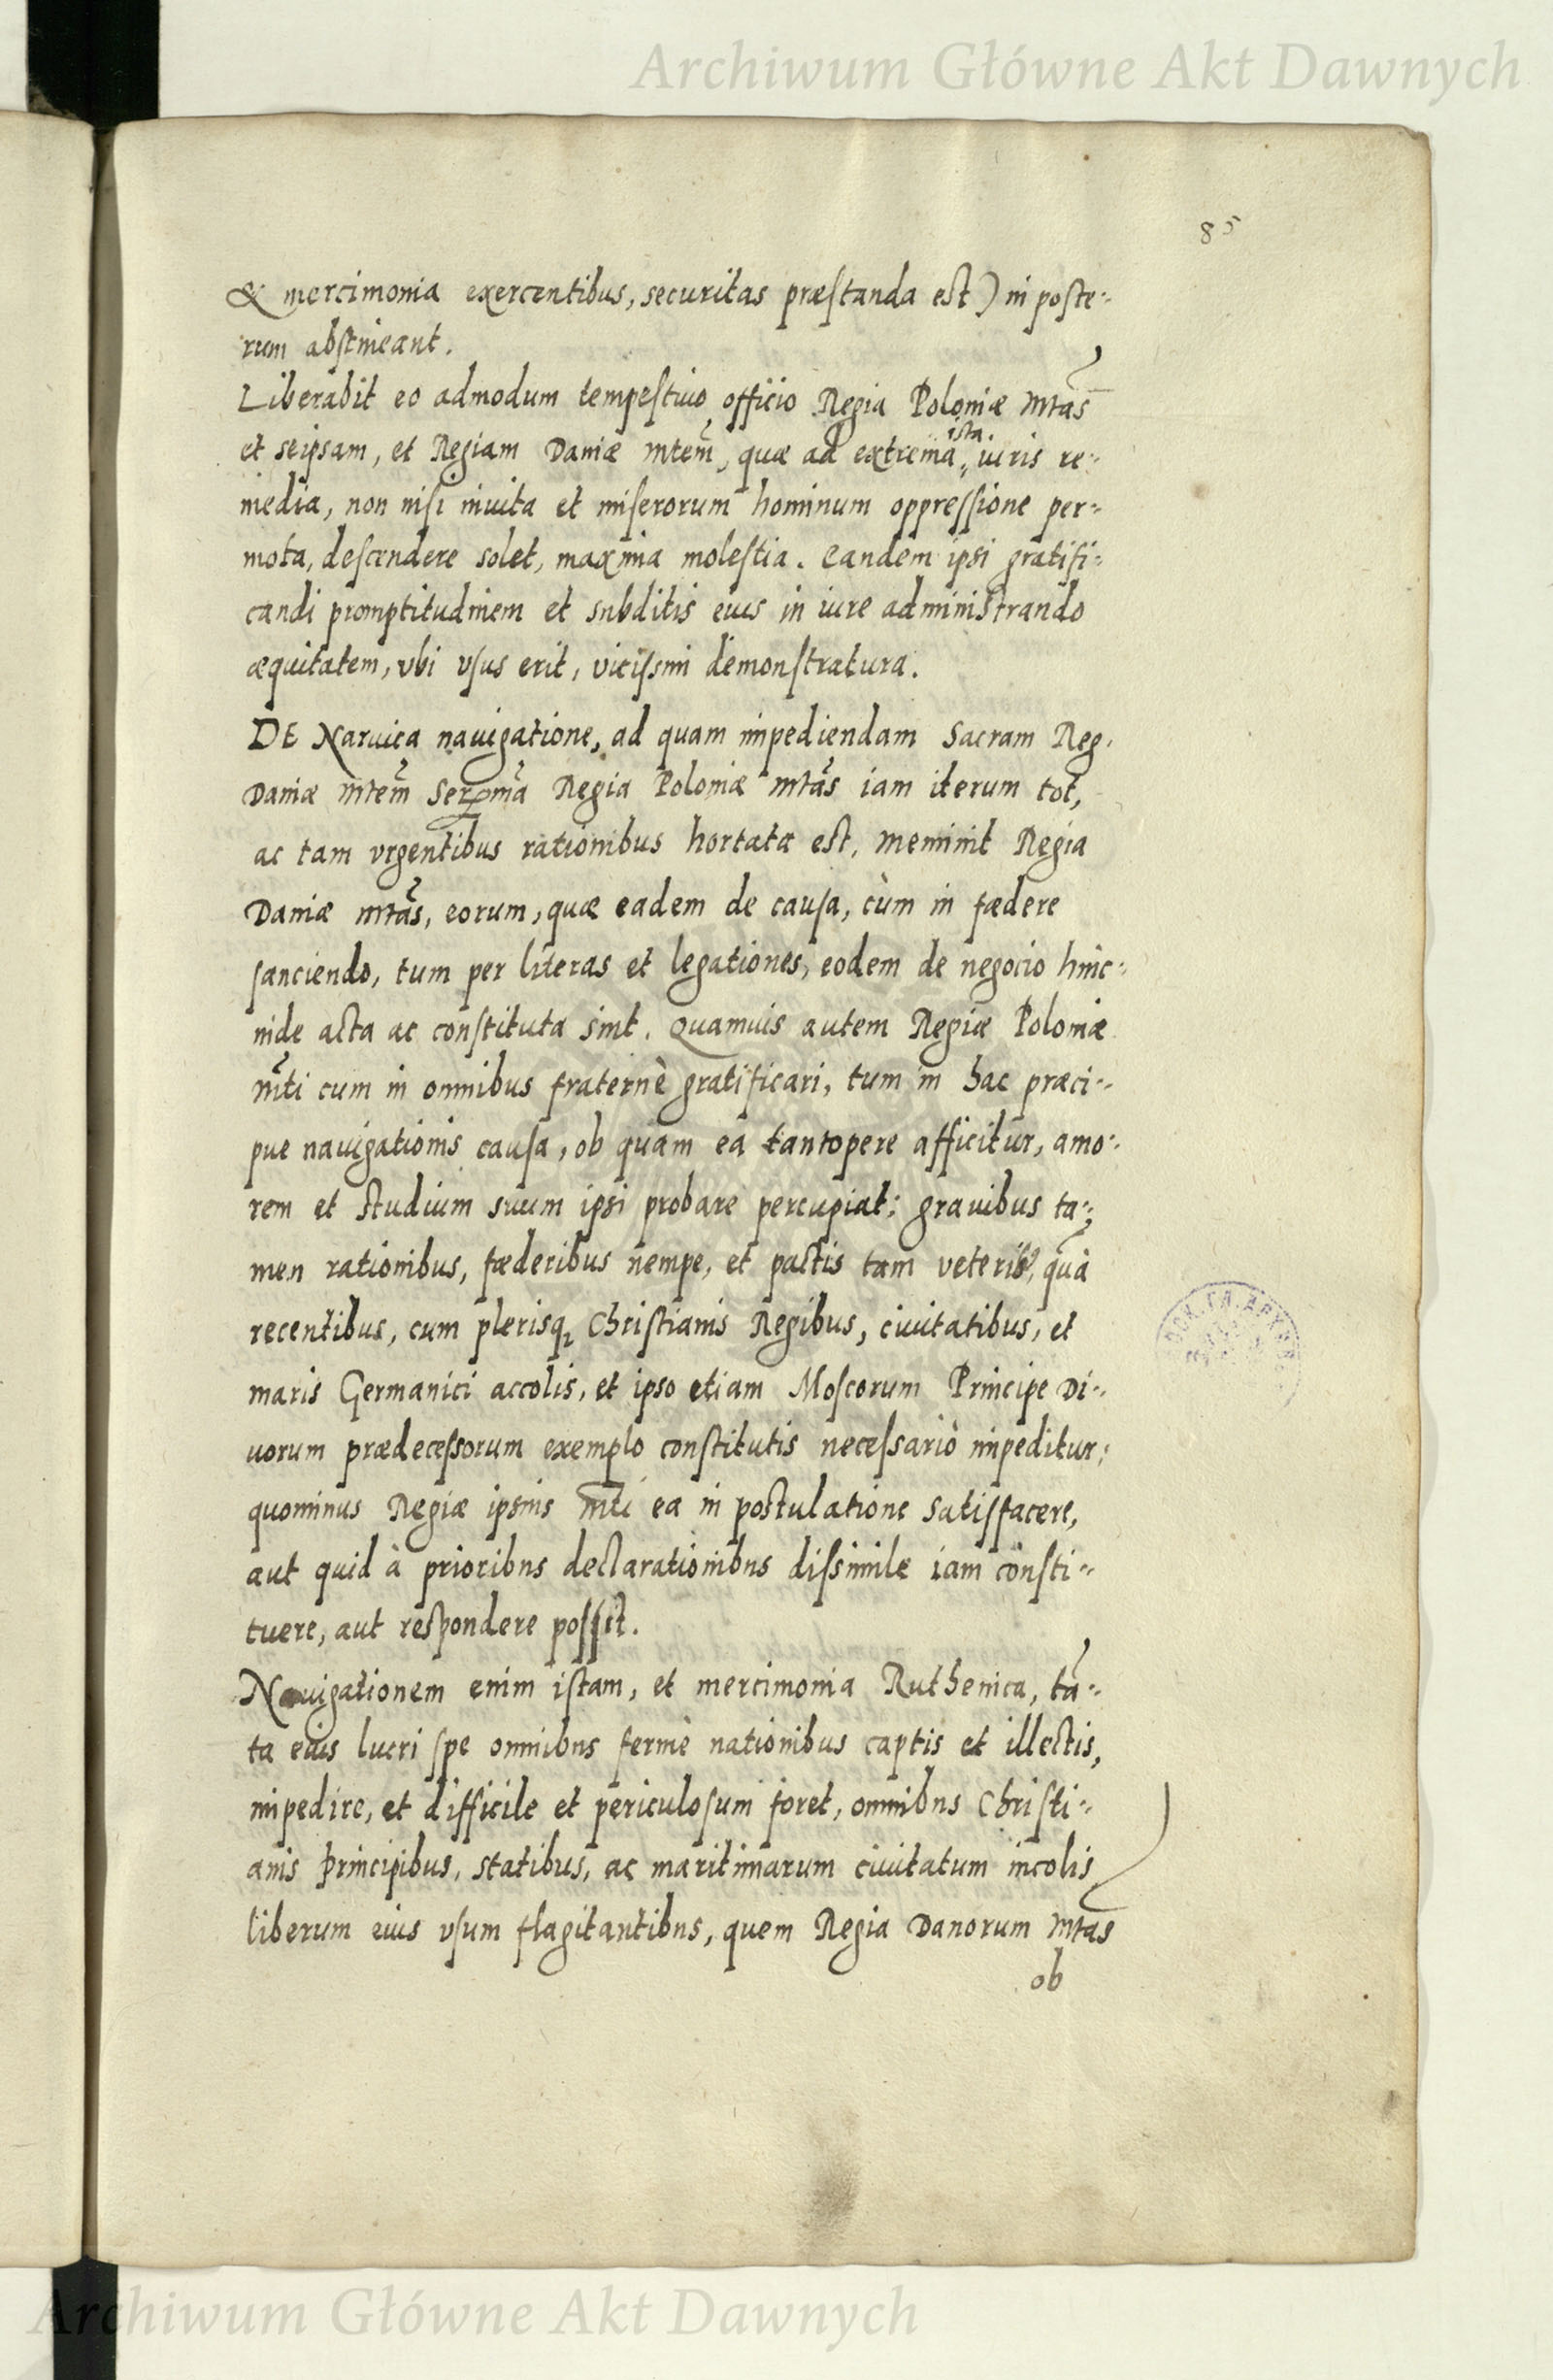 Archiwum Główne Akt Dawnych
85
& mercimonia exercentibus, securitas præstanda est) in poste-
rum abstineant.
Liberabit eo admodum tempestiuo officio Regia Poloniæ Mtas
et seipsam, et Regiam Daniæ Mtem, quæ ad extrema ista iuris re-
media, non nisi inuita et miserorum hominum oppressione per-
mota, descendere solet, maxima molestia. Eandem ipsi gratifi-
candi promptitudinem et subditis eius in iure administrando
æquitatem, vbi vsus erit, vicissim demonstratura.
DE Naruica nauigatione, ad quam impediendam Sacram Reg.
Daniæ Mtem Serma Regia Poloniæ Mtas iam iterum tot,
ac tam vrgentibus rationibus hortata est, meminit Regia
Daniæ Mtas, eorum, quæ eadem de causa, cùm in fædere
sanciendo, tum per literas et legationes, eodem de negocio hinc-
inde acta ac constituta sint. Quamuis autem Regiæ Poloniæ
Mti cum in omnibus fraternè gratificari, tum in hac præci-
pue nauigationis causa, ob quam ea tantopere afficitur, amo-
rem et studium suum ipsi probare percupiat; grauibus ta-
men rationibus, fæderibus nempe, et pactis tam veteribus, quã
recentibus, cum plerisq; Christianis Regibus, ciuitatibus, et
maris Germanici accolis, et ipso etiam Moscorum Principe Di-
uorum prædecessorum exemplo constitutis necessariò impeditur;
quominus Regiæ ipsius Mti ea in postulatione satisfacere,
aut quid à prioribus declarationibus dissimile iam consti-
tuere, aut respondere possit.
Nauigationem enim istam, et mercimonia Ruthenica, tã-
ta eius lucri spe omnibus fermè nationibus captis et illectis,
impedire, et difficile et periculosum foret, omnibus Christi-
anis Principibus, statibus, ac maritimarum ciuitatum incolis
liberum eius vsum flagitantibus, quem Regia Danorum Mtas
ob
Archiwum Główne Akt Dawnych